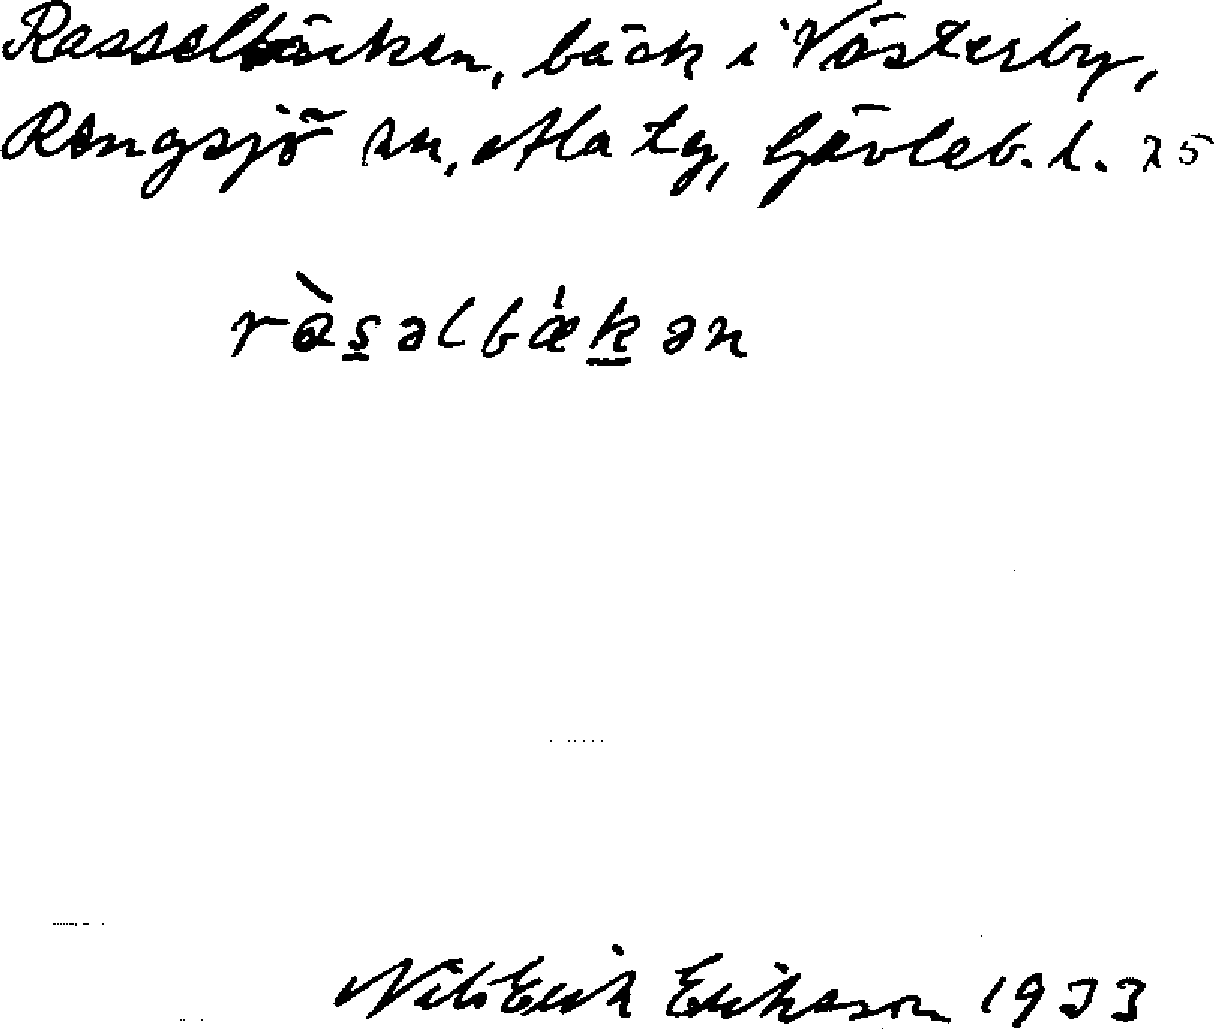 Rasselbäcken, bäck i Västerby,
Rengsjö sn, Ala tg, Gävleb. l. 25
ràs̲əlbǽk̲ən
Nils Erik Erikson 1933